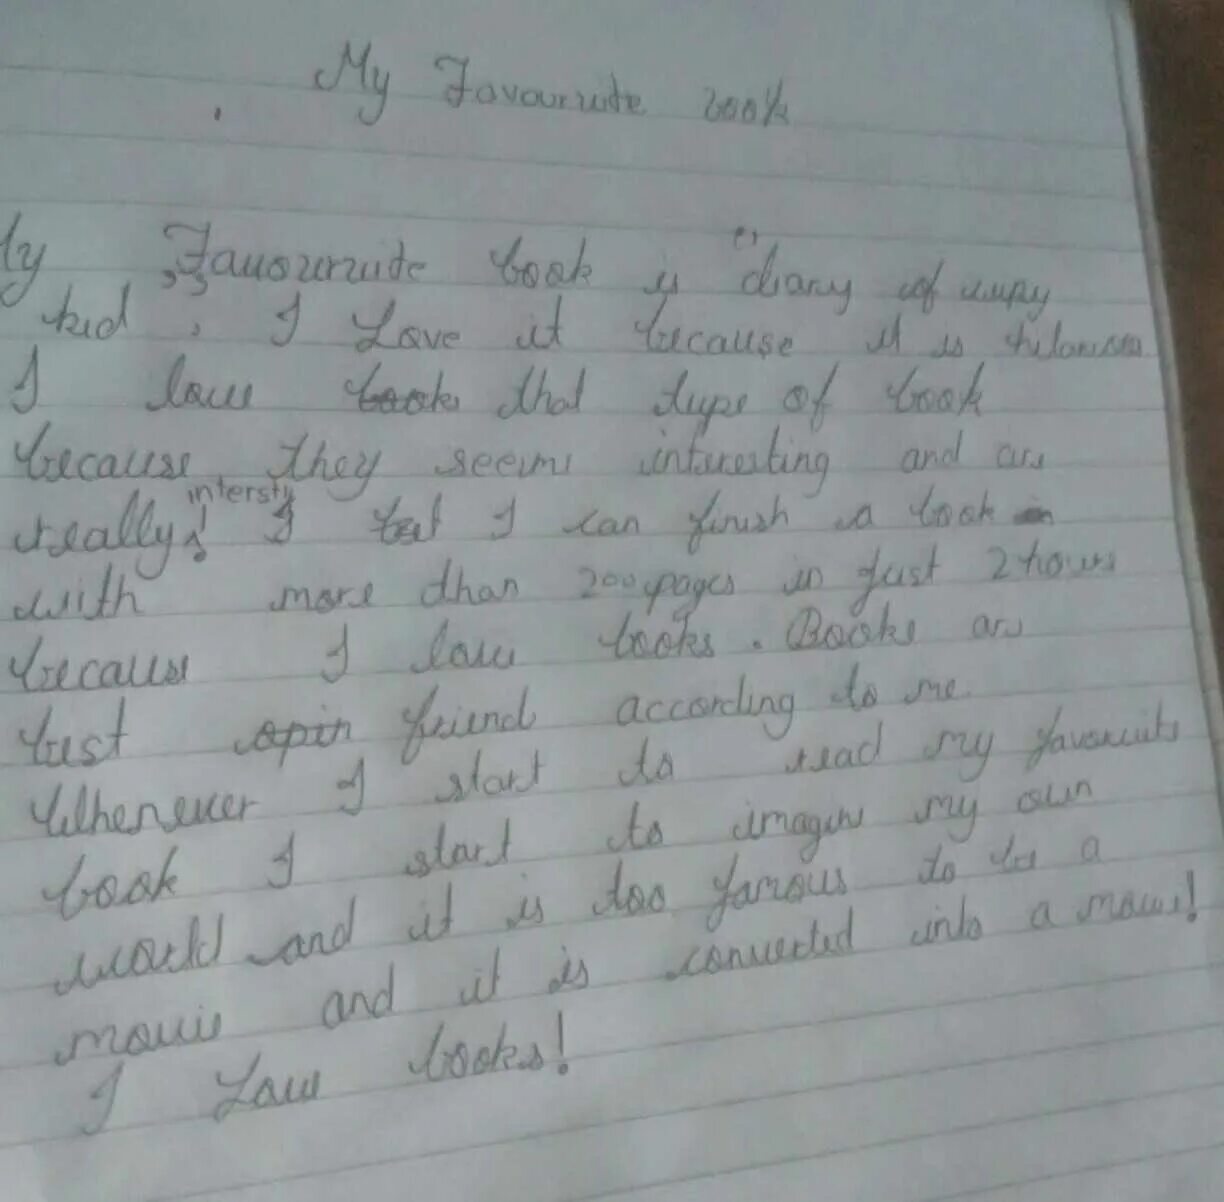 My Favourite book
My Favourite book is "diary of wimpy
kid, I Love it because it is hilarious
I love that type of book
because they seems interesting and are
really! intersty I bet I can finish a book
with more than 200 pages in just 2 hours
because I love books. Books are
best friend according to me.
Whenever I start to read my favourite
book I start to imagine my own
world and it is too famous to be a
movie and it is converted into a movie!
I Love books!